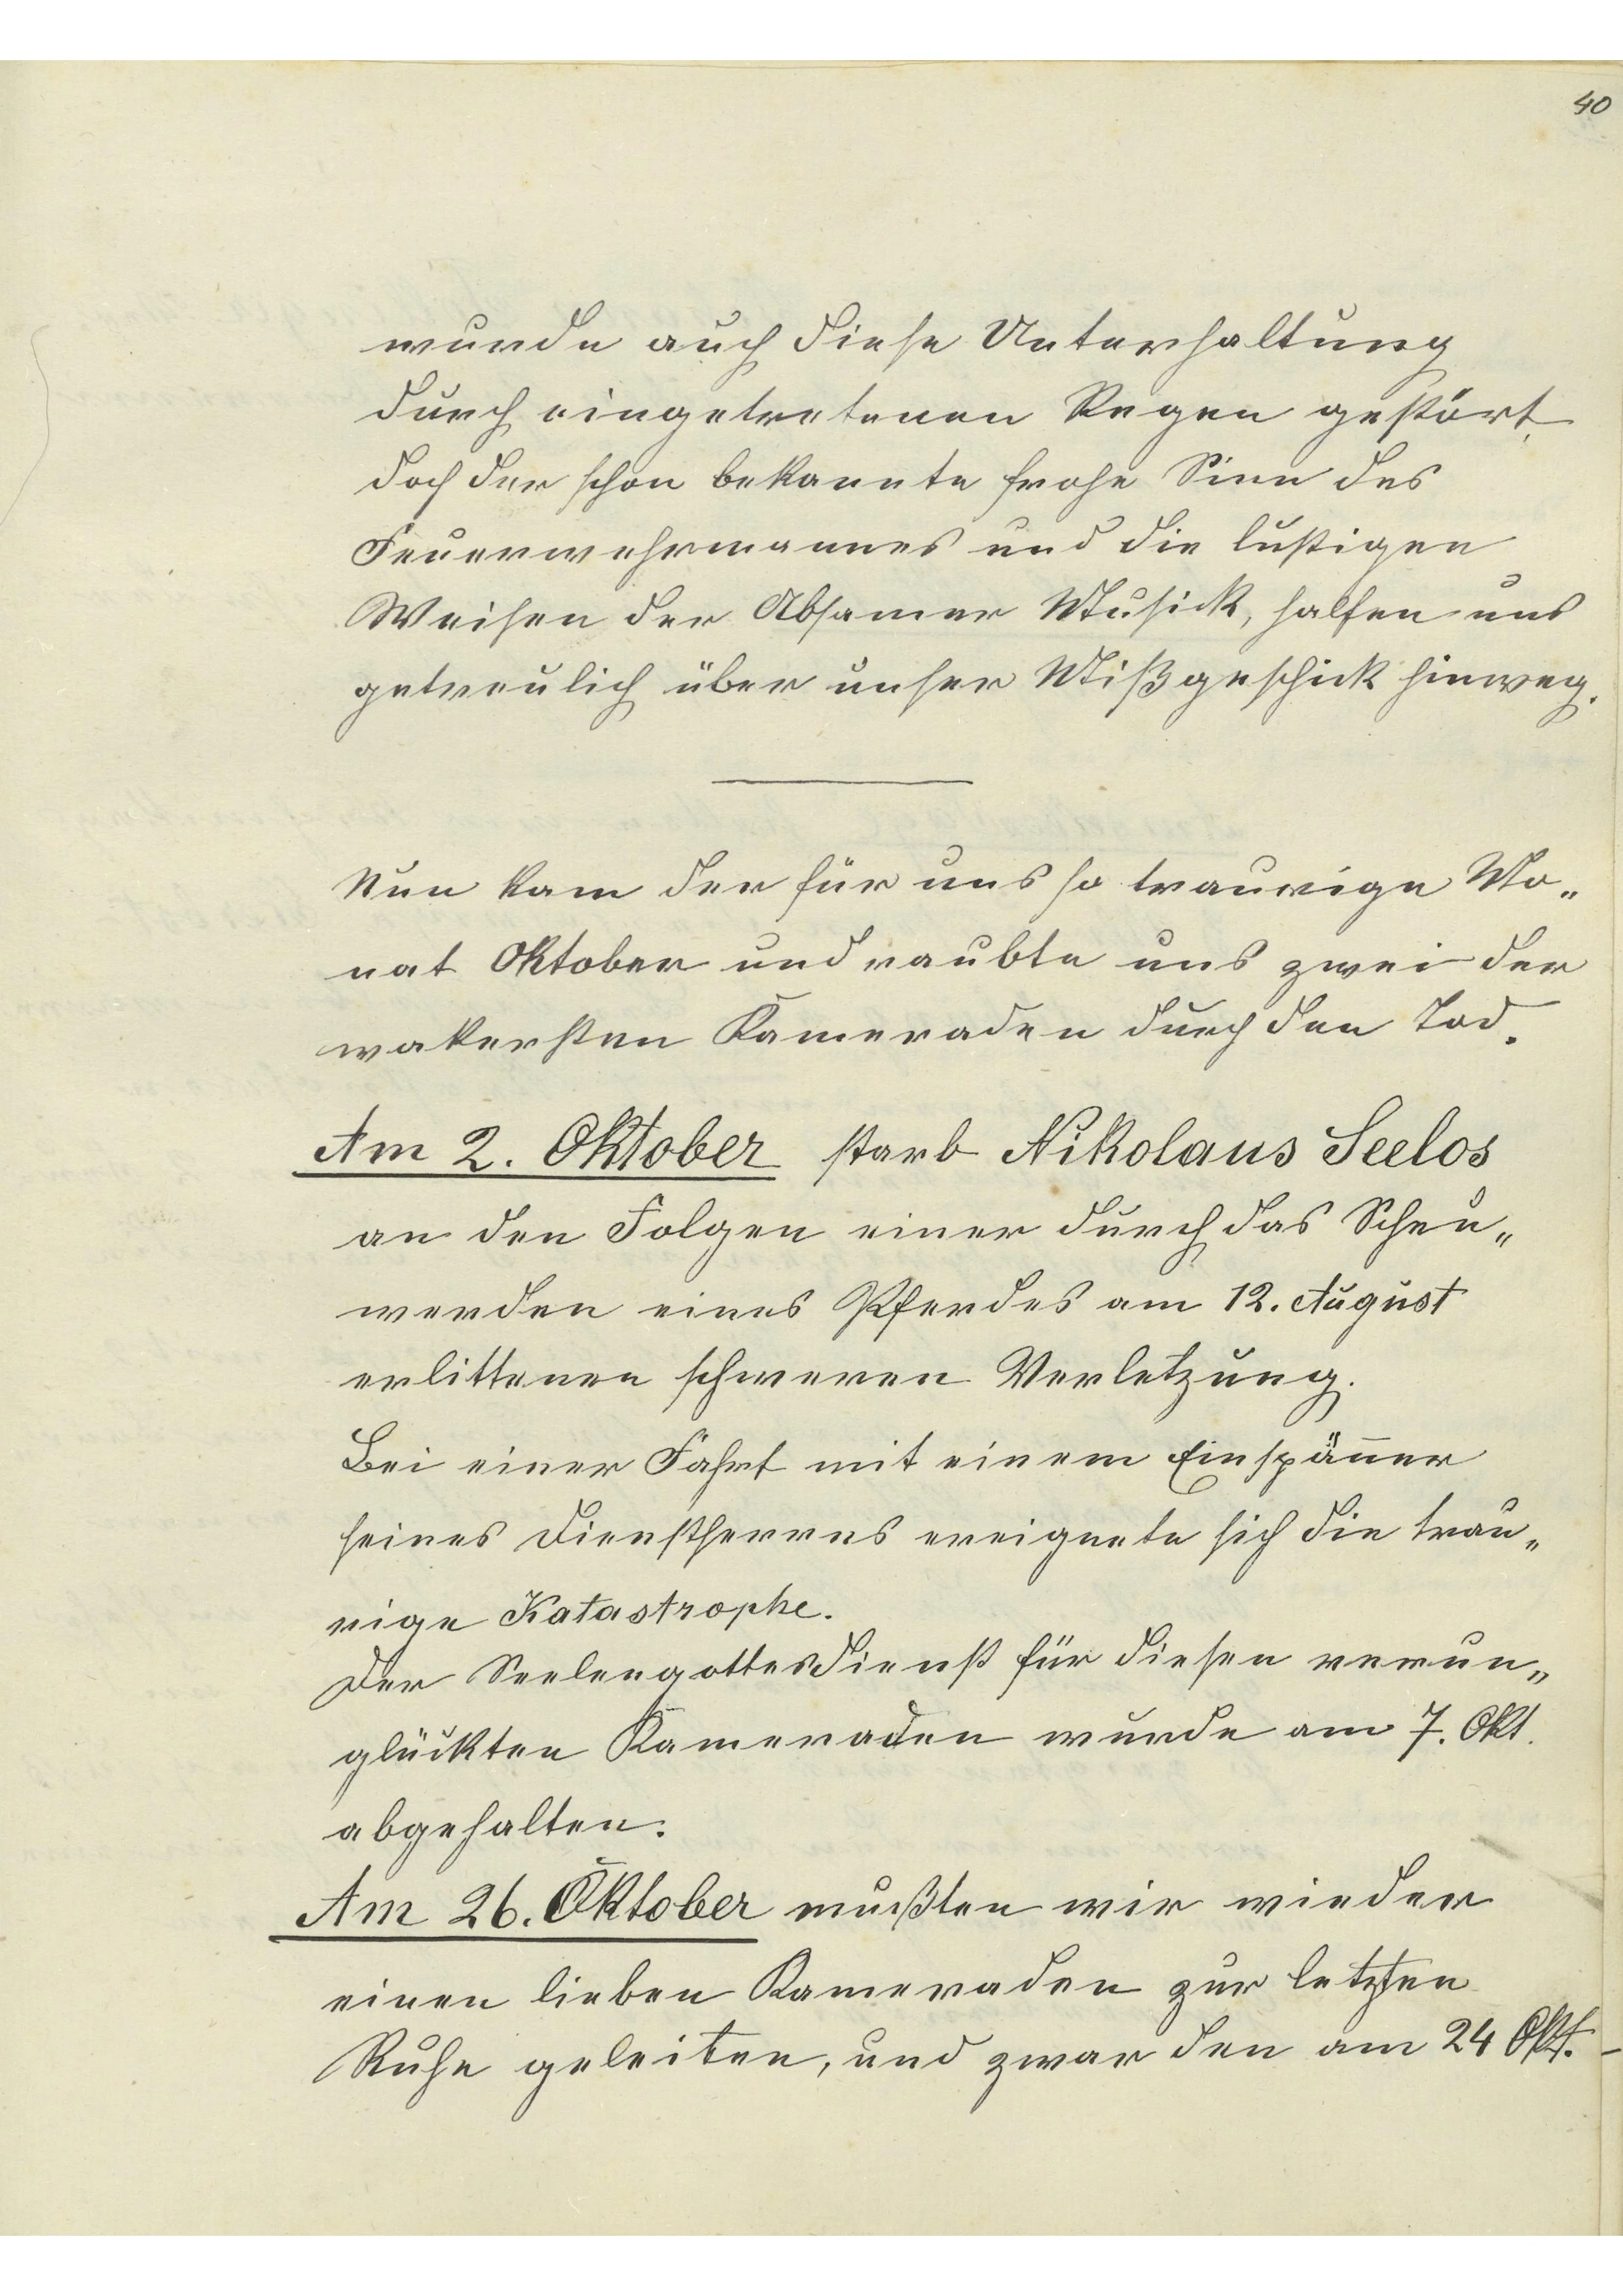 40
wurde auch diese Unterhaltung
durch eingetretenen Regen gestört,
doch der schon bekannte frohe Sinn des
Feuerwehrmannes und die lustigen
Weisen der Absamer Musick, halfen uns
getreulich über unser Mißgeschick hinweg.
Nun kam der für uns so traurige Mo„
nat Oktober und raubte uns zwei der
wakersten Kameraden durch den Tod.
Am 2. Oktober starb Nikolaus Seelos
an den Folgen einer durch das Scheu„
werden eines Pferdes am 12. August
erlittenen schweren Verletzung.
Bei einer Fahrt mit einem Einspäñer
seines Dienstherrns ereignete sich die trau„
rige Katastrophe.
Der Seelengottesdienst für diesen verun„
glückten Kameraden wurde am 7. Okt.
abgehalten.
Am 26. Oktober mußten wir wieder
einen lieben Kameraden zur letzten
Ruhe geleiten, und zwar den am 24 Okt. –